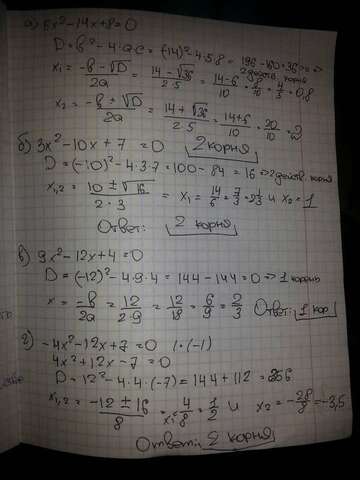 а) 5x²-14x+8=0
D=b²-4·a·c=(14)²-4·5·8=196-160=36>=>
2 действ. корня
x₁=(-b-√D)/2a=(14-√36)/(2·5)=(14-6)/10=8/10=4/5=0,8
x₂=(-b+√D)/2a=(14+√36)/(2·5)=(14+6)/10=20/10=2
2 корня
б) 3x²-10x+7=0
D=(-10)²-4·3·7=100-84=16=>2 действ. корня
x₁,₂=(10±√16)/(2·3)=x₁=14/6=7/3=2 1/3 и x₂=1
Ответ: 2 корня
в) 9x²-12x+4=0
D=(-12)²-4·9·4=144-144=0=>1 корень
x=-b/2a=12/(2·9)=12/18=6/9=2/3 Ответ: 1 кор
г) -4x²-12x+7=0 |·(-1)
4x²+12x-7=0
D=12²-4·4·(-7)=144+112=256
x₁,₂=(-12±16)/8=x₁=4/8=1/2 и x₂=-28/8=-3,5
Ответ: 2 корня